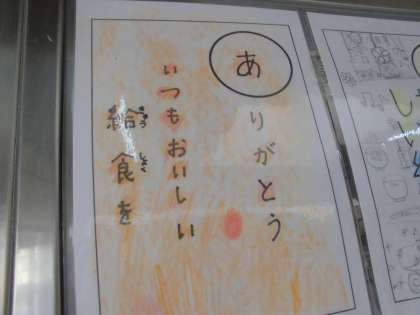 ありがとう
いつもおいしい
給食を
きゅう
しょく